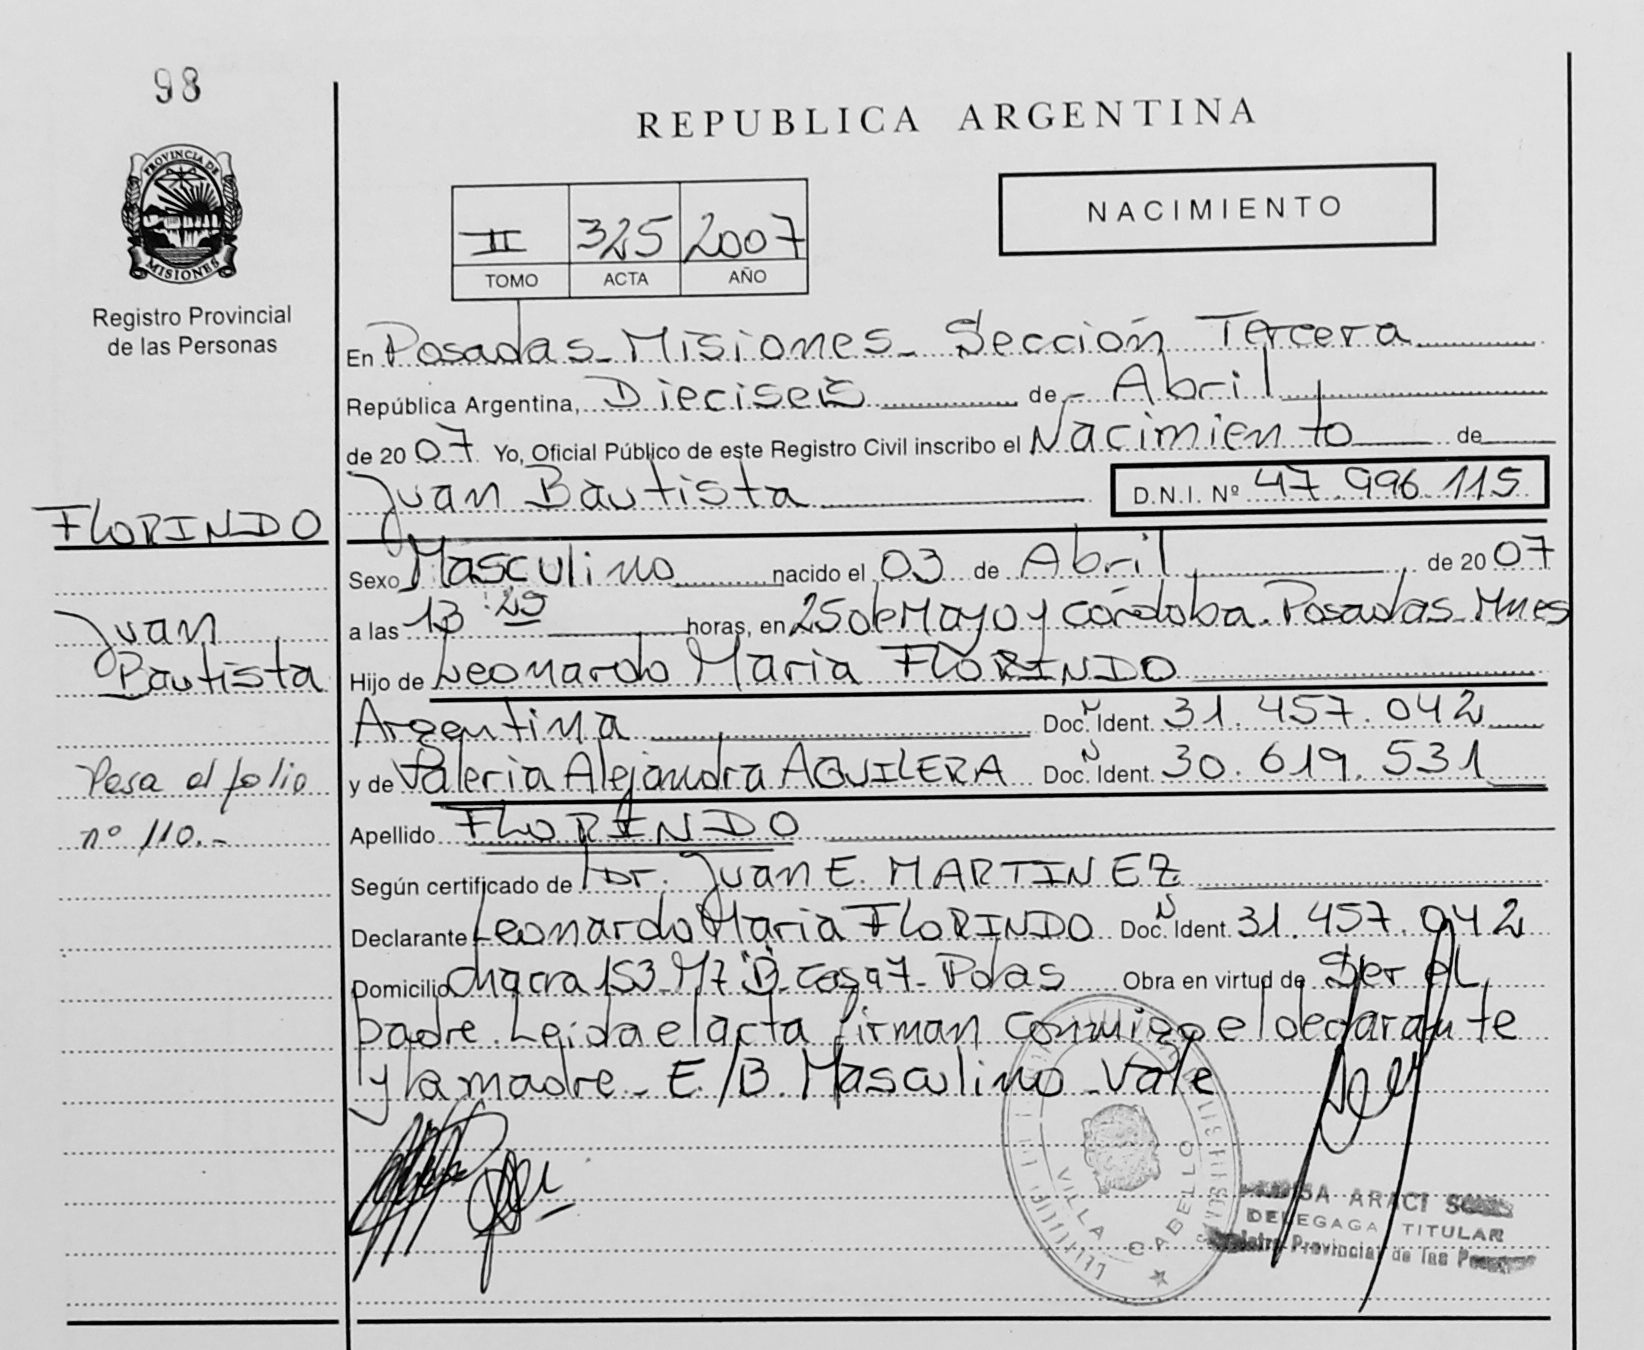 98
REPUBLICA ARGENTINA
PROVINCIA DE
MISIONES
Registro Provincial
de las Personas
II 325 2007
TOMO ACTA AÑO
NACIMIENTO
En Posadas - Misiones - Sección Tercera
República Argentina, Dieciseis de Abril
de 2007 Yo, Oficial Público de este Registro Civil inscribo el Nacimiento de
Juan Bautista D.N.I. Nº 47.996.115
FLORINDO
Sexo Masculino nacido el 03 de Abril de 2007
Juan
Bautista
a las 13:29 horas, en 25 de Mayo y Córdoba. Posadas - Mnes
Hijo de Leonardo Maria FLORINDO
Argentina Doc. Ident. 31.457.042
Pasa al folio
nº 110.-
y de Valeria Alejandra AGUILERA Doc. Ident. 30.619.531
Apellido FLORINDO
Según certificado de Dr. Juan E. MARTINEZ
Declarante Leonardo Maria FLORINDO Doc. Ident. 31.457.042
Domicilio Chacra 153 M7 "B" casa 7 - Pdas Obra en virtud de Ser el
padre. Leida el acta firman conmigo el declarante
y la madre - E/B. Masculino - Vale
VILLA CABELLO
ARACI
DELEGAGA TITULAR
Provincial de las